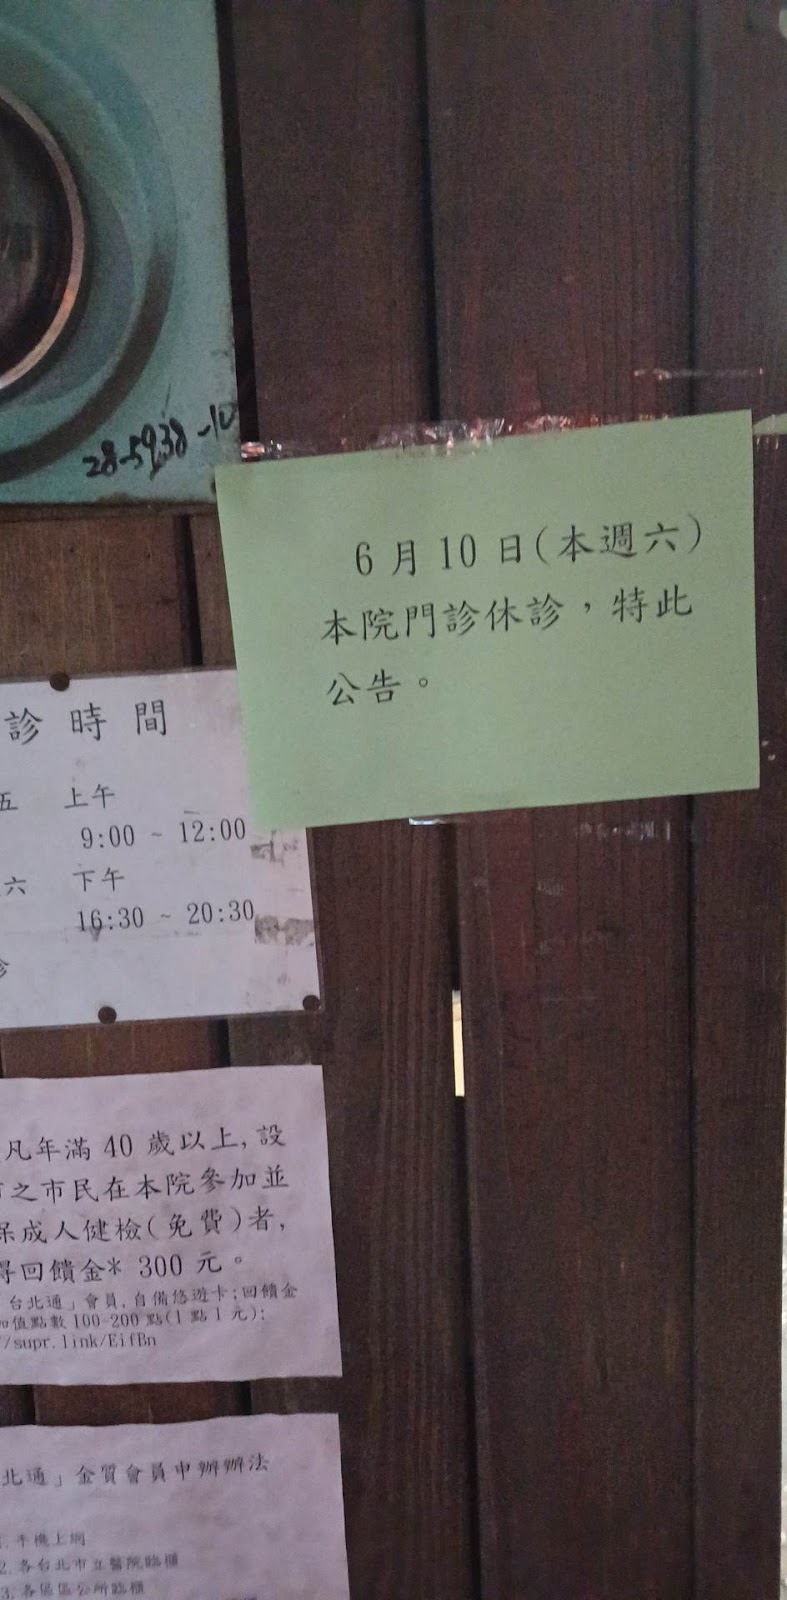 28-5938-10
6月10日(本週六)
本院門診休診，特此
公告。
診時間
五 上午
9:00 ~ 12:00
六 下午
16:30 ~ 20:30
診
凡年滿 40 歲以上, 設
之市民在本院參加並
保成人健檢(免費)者,
得回饋金* 300 元。
台北通」會員, 自備悠遊卡;回饋金
加值點數 100-200 點(1 點 1 元):
/supr.link/EifBn
北通」金質會員申辦辦法
1. 手機上網
2. 各台北市立醫院臨櫃
3. 各區區公所臨櫃